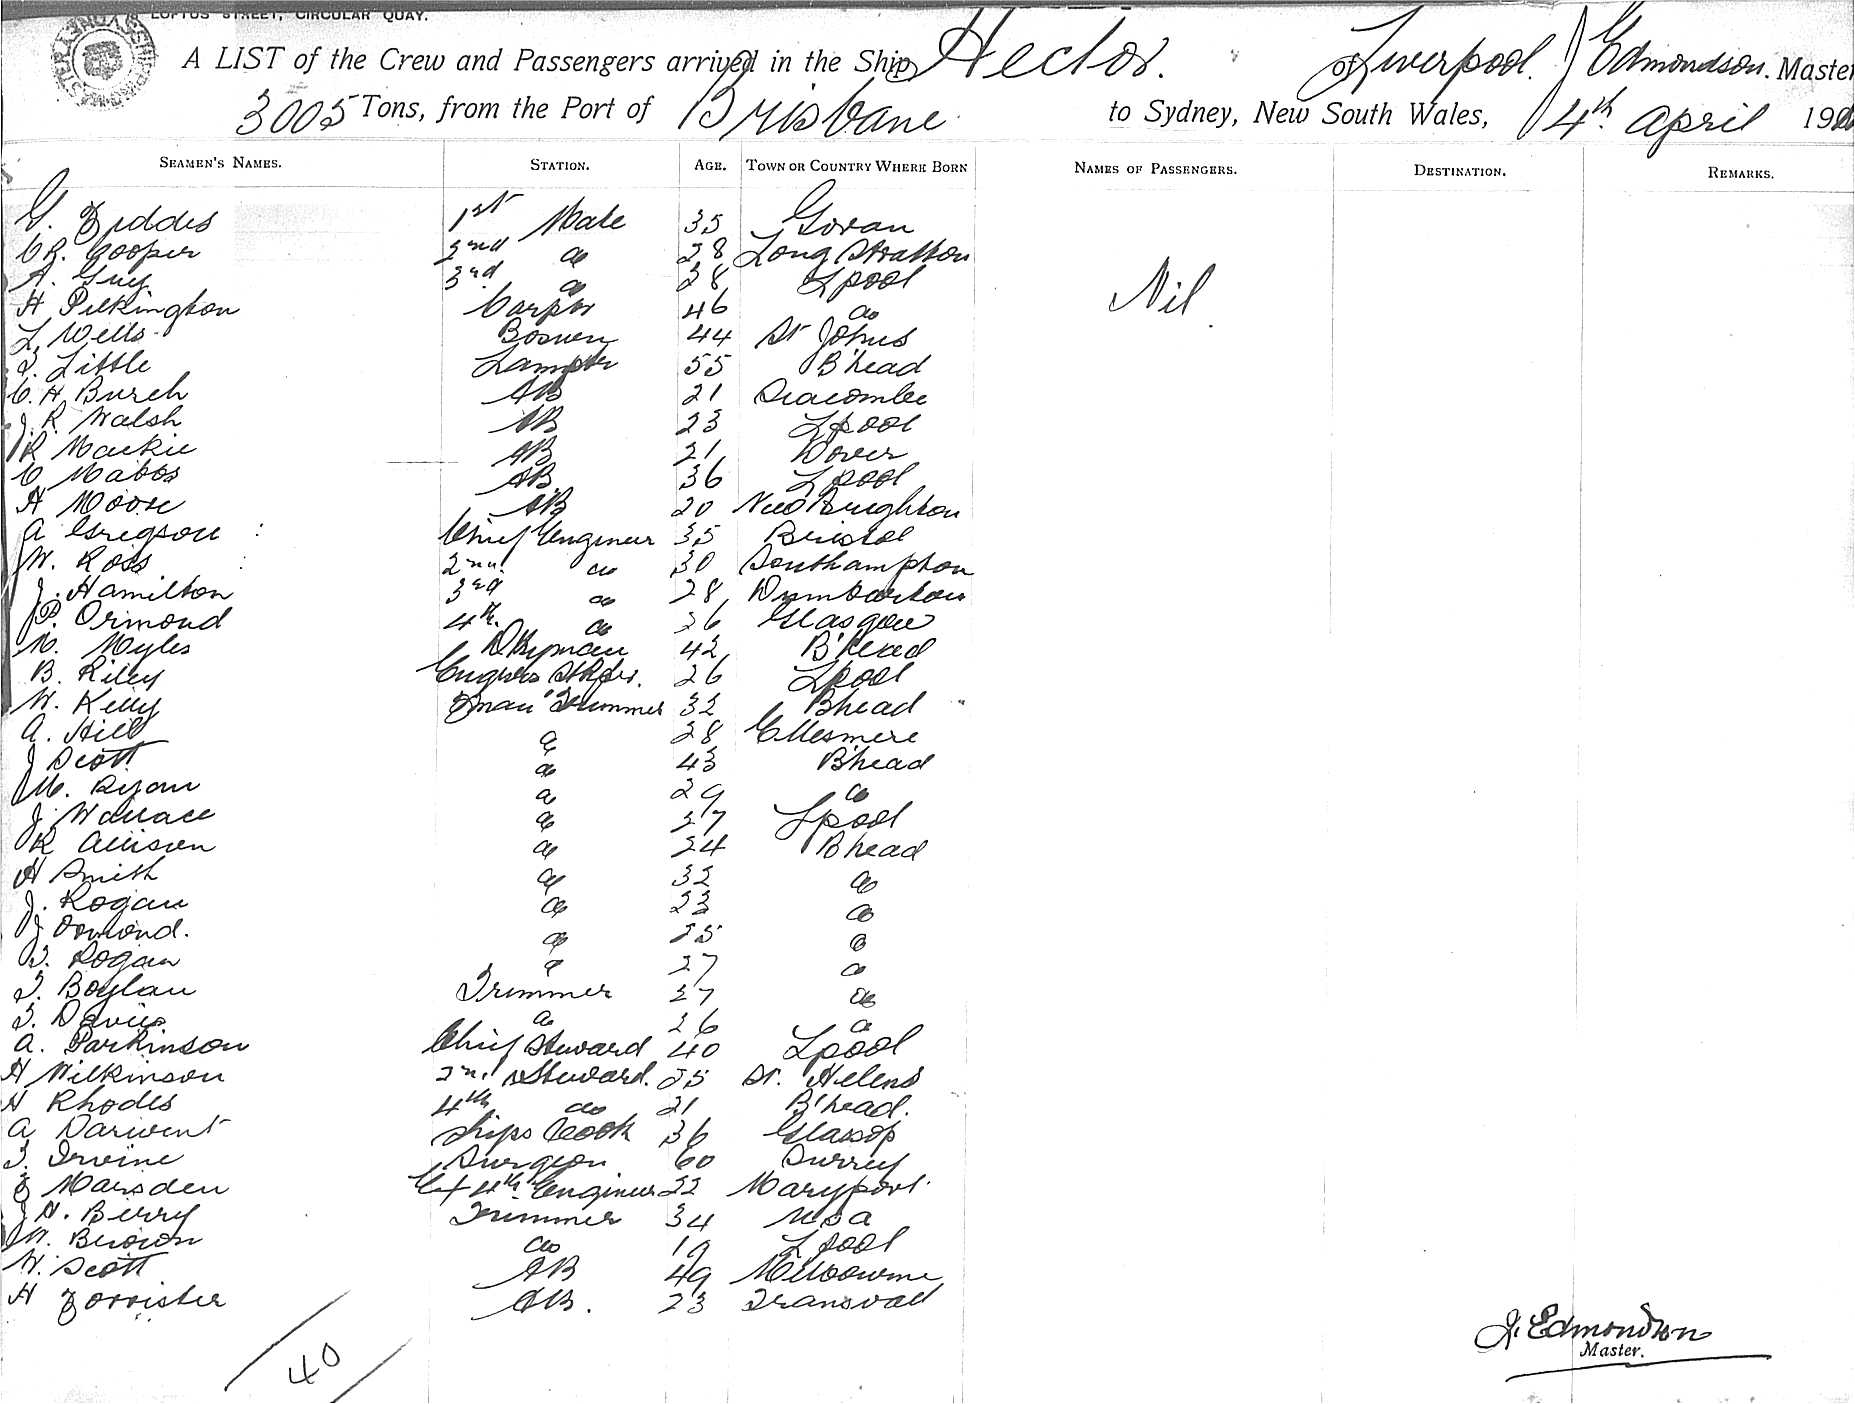 LOFTUS STREET, CIRCULAR QUAY.
A LIST of the Crew and Passengers arrived in the Ship Hector. of Liverpool. J Edmondson. Master
3005 Tons, from the Port of Brisbane to Sydney, New South Wales, 4th April 19
SEAMEN'S NAMES. STATION. AGE. TOWN OR COUNTRY WHERE BORN NAMES OF PASSENGERS. DESTINATION. REMARKS.
G. Fiddes 1st Mate 35 Govan
C R. Cooper 2nd do 28 Long Stratton
A. Guy 3rd do 28 Lpool
Nil
H Pilkington Carptr 46 do
L Wells Bosun 44 St Johns
T. Little Lamptr 55 B'head
C. H Burch AB 21
J. R Walsh AB 23 Lpool
R Mackie AB 21 Dover
C Mabbs AB 36 Lpool
H Moore AB 20 New Brighton
A Gregson Chief Engineer 35 Bristol
W. Ross 2nd do 30 Southampton
J. Hamilton 3rd do 28 Dumbarton
P. Ormond 4th. do 26 Glasgow
M. Myles Dkyman 42 B'head
B. Riley Engnrs Stkpr. 26 Lpool
W. Kelly Fman Trimmer 32 Bhead
A. Hill do 28 Ellesmere
J Scott do 43 B'head
M. Ryan do 29 do
J Wallace do 27 Lpool
R Allison do 24 Bhead
H Smith do 32 do
J. Rogan do 23 do
J Osmond. do 25 do
T. Rogan do 27 do
T. Boylan Trimmer 27 do
T. Davies do 26 do
A. Parkinson Chief Steward 40 Lpool
H Wilkinson 2nd Steward. 25 St. Helens
H Rhodes 4th do 21 B'head.
A Darwent Ships Cook 36 Glossop
T. Irvine Surgeon 60 Surrey
F Marsden Ex 4th Engineer 22 Maryport
J H. Berry Trimmer 34 USA
W. Brown do 19 Lpool
W. Scott AB 49 Melbourne
H Forrister AB. 23 Transvaal
40
J. Edmondson
Master.